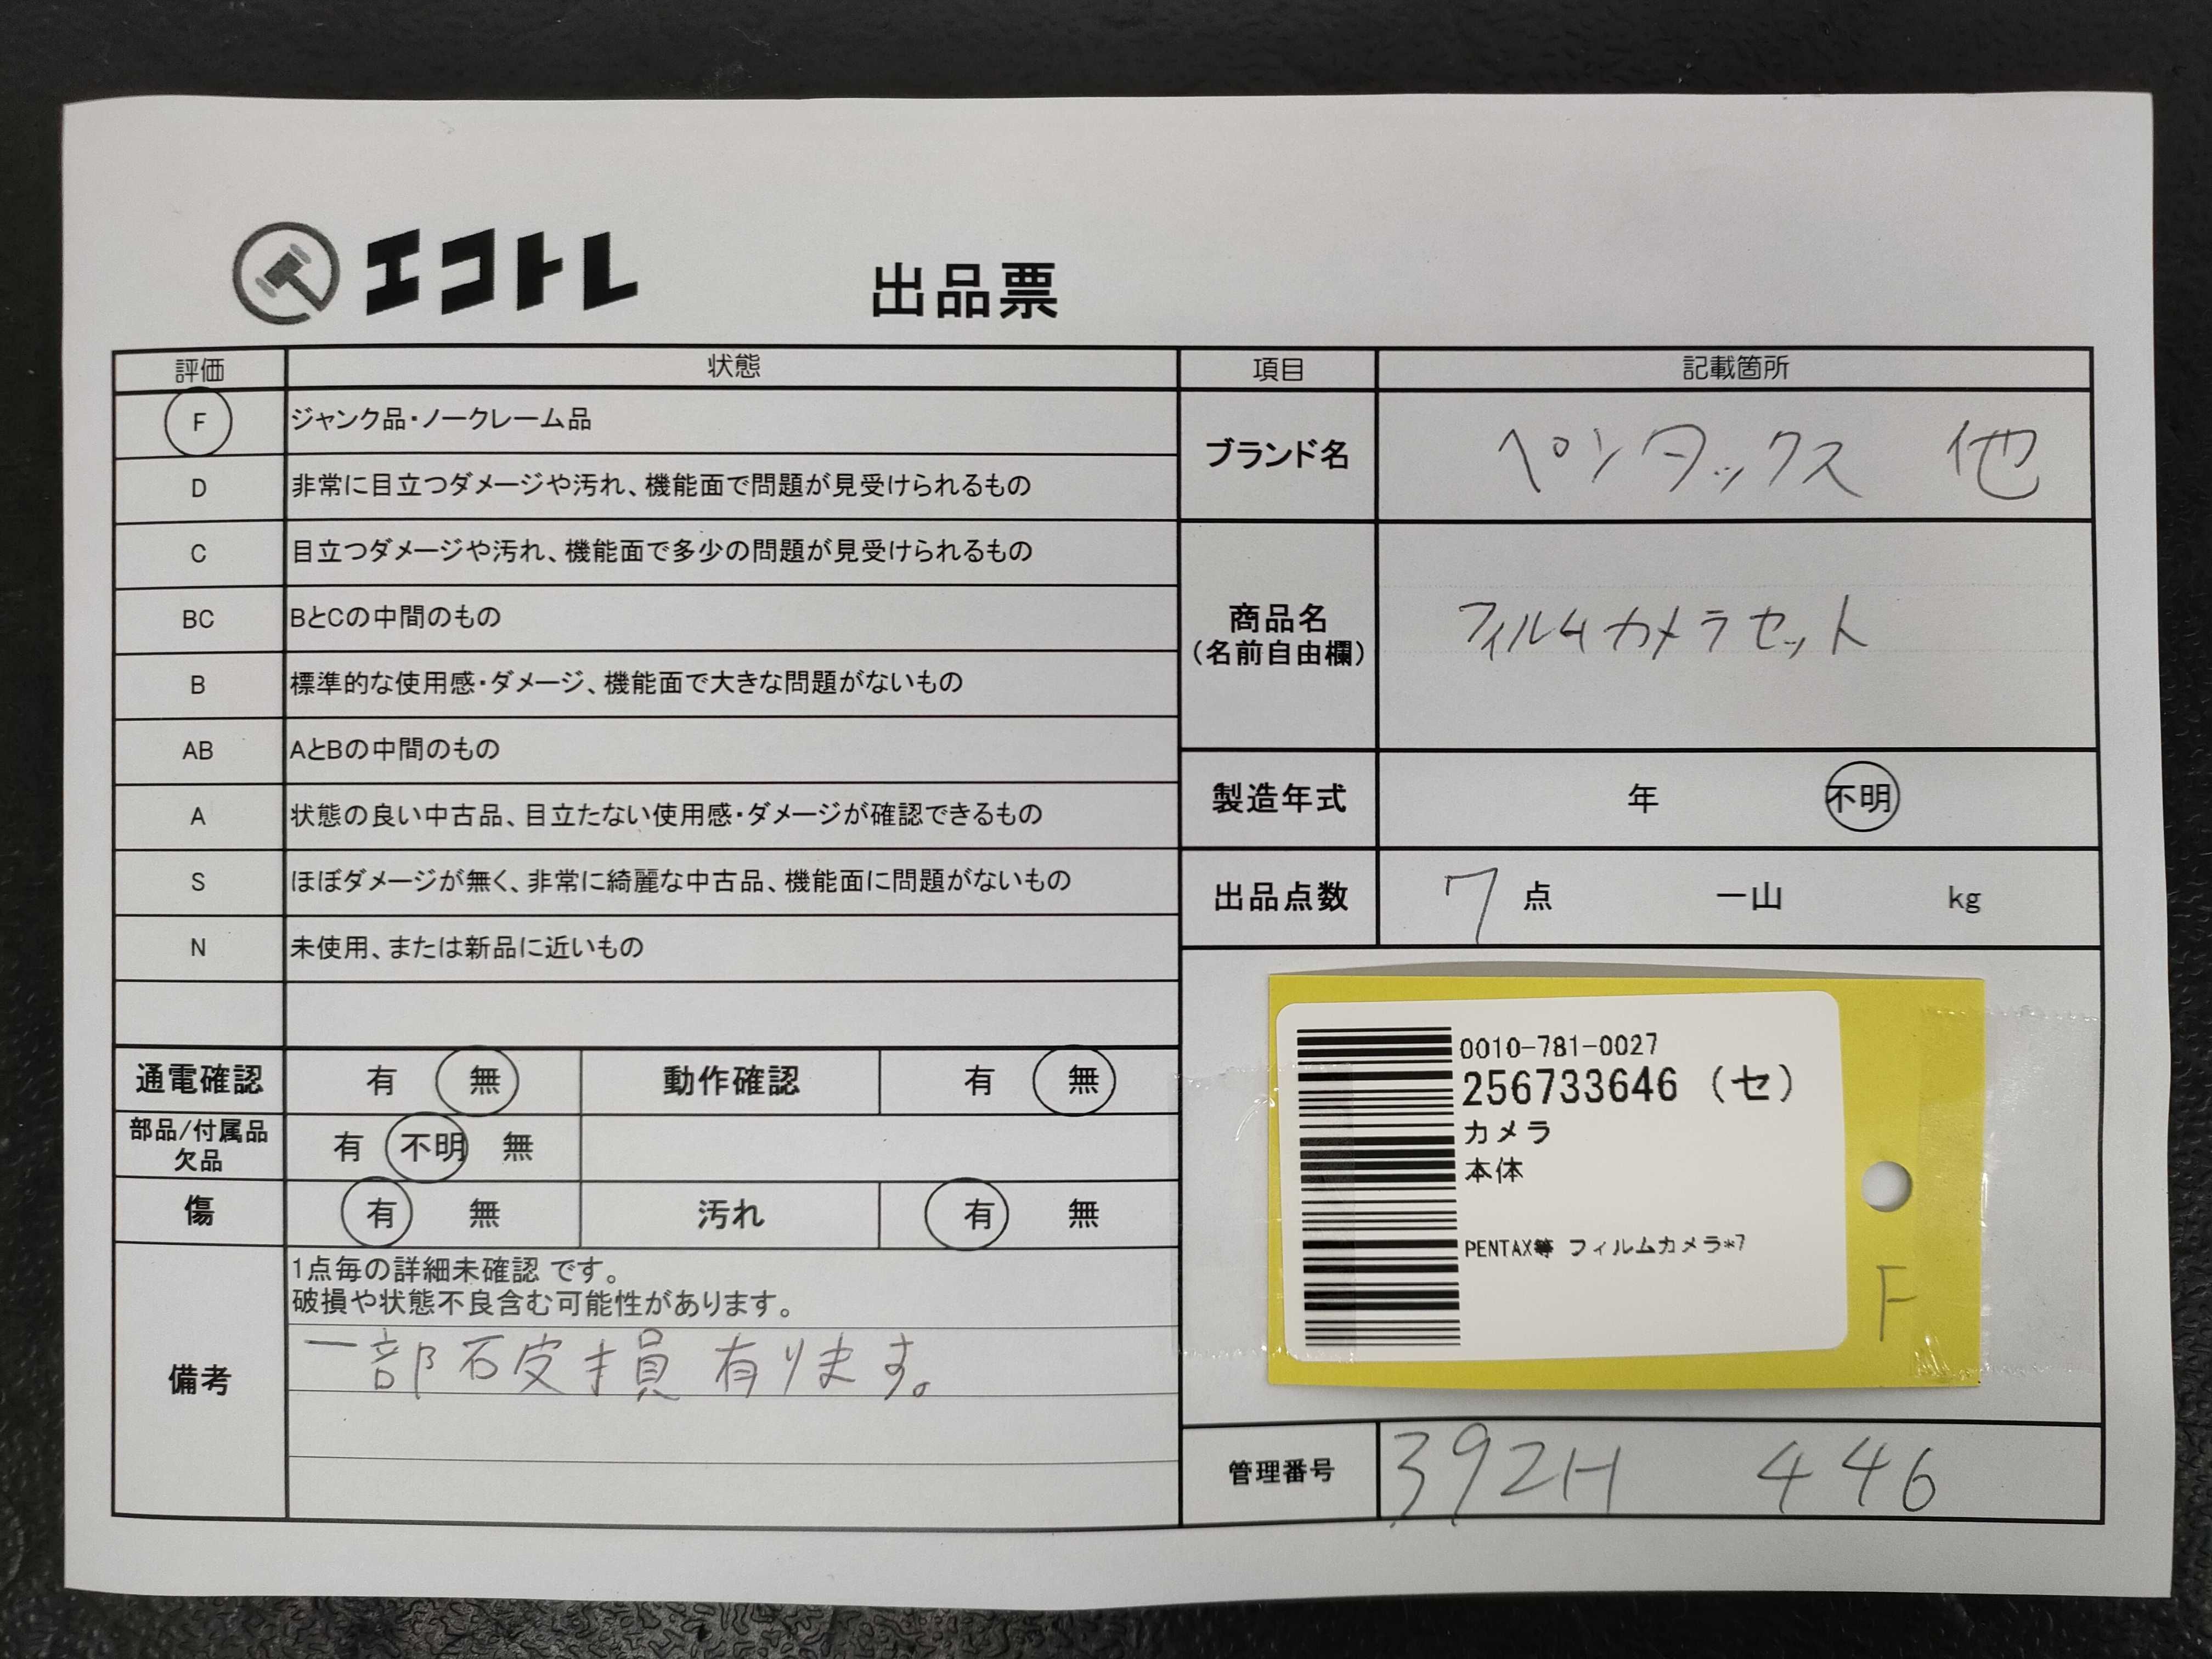 エコトレ
出品票
評価 状態
F ジャンク品・ノークレーム品
D 非常に目立つダメージや汚れ、機能面で問題が見受けられるもの
C 目立つダメージや汚れ、機能面で多少の問題が見受けられるもの
BC BとCの中間のもの
B 標準的な使用感・ダメージ、機能面で大きな問題がないもの
AB AとBの中間のもの
A 状態の良い中古品、目立たない使用感・ダメージが確認できるもの
S ほぼダメージが無く、非常に綺麗な中古品、機能面に問題がないもの
N 未使用、または新品に近いもの
通電確認 有 無 動作確認 有 無
部品/付属品
欠品
有 不明 無
傷 有 無 汚れ 有 無
備考
1点毎の詳細未確認 です。
破損や状態不良含む可能性があります。
一部破損有ります。
項目 記載箇所
ブランド名 ペンタックス 他
商品名
(名前自由欄)
フィルムカメラセット
製造年式 年 不明
出品点数 7 点 一山 kg
0010-781-0027
256733646 (セ)
カメラ
本体
PENTAX等 フィルムカメラ*7
F
管理番号 392H 446